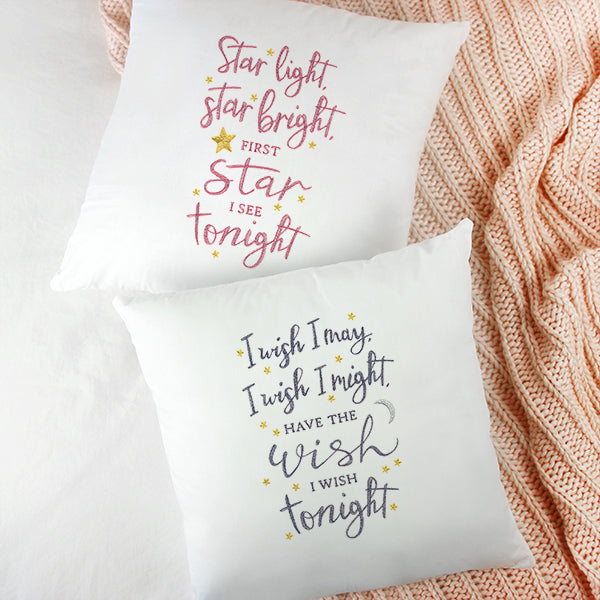 Star light,
star bright,
FIRST
Star
I SEE
tonight
I wish I may,
I wish I might,
HAVE THE
wish
I WISH
tonight